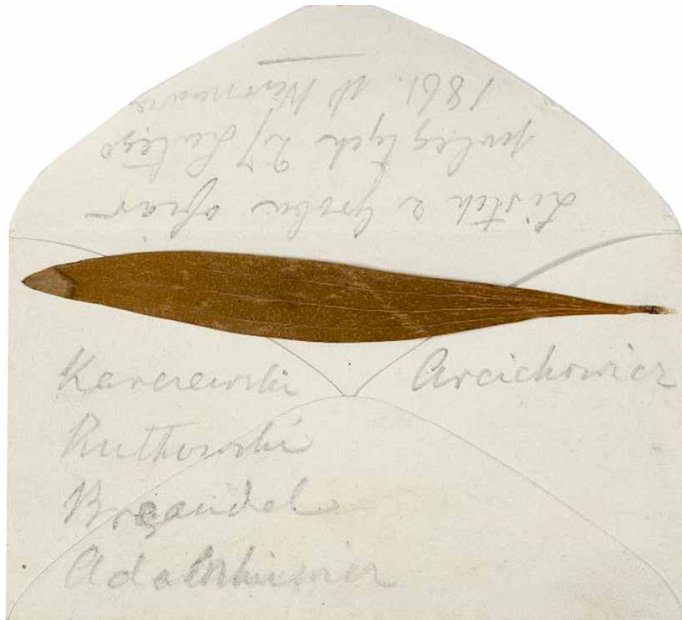 Listek z Grobu ofiar
poległych 27 Lutego
1861. W Warszawie
Karczewski Arcichowicz
Rutkowski
Brendel
Adamkiewicz